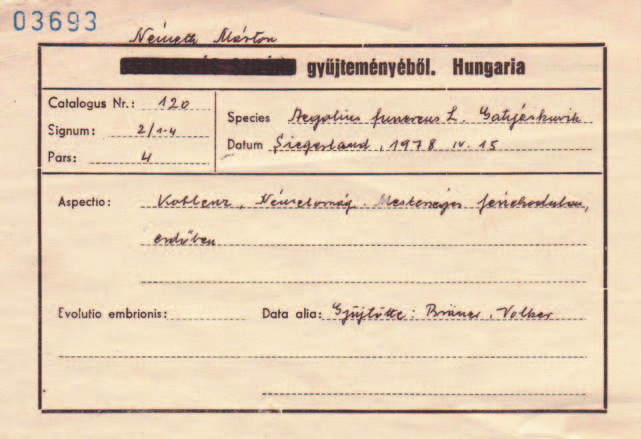 03693
Németh Márton
gyűjteményéből. Hungaria
Catalogus Nr.: 120
Signum: 2/1-4
Pars: 4
Species Aegolius funereus L. Gatyáskuvik
Datum Siegerland, 1978 IV. 15
Aspectio: Koblenz, Németország. Mesterséges fészekodúban,
erdőben
Evolutio embrionis:
Data alia: Gyűjtötte: Bräuer, Volker